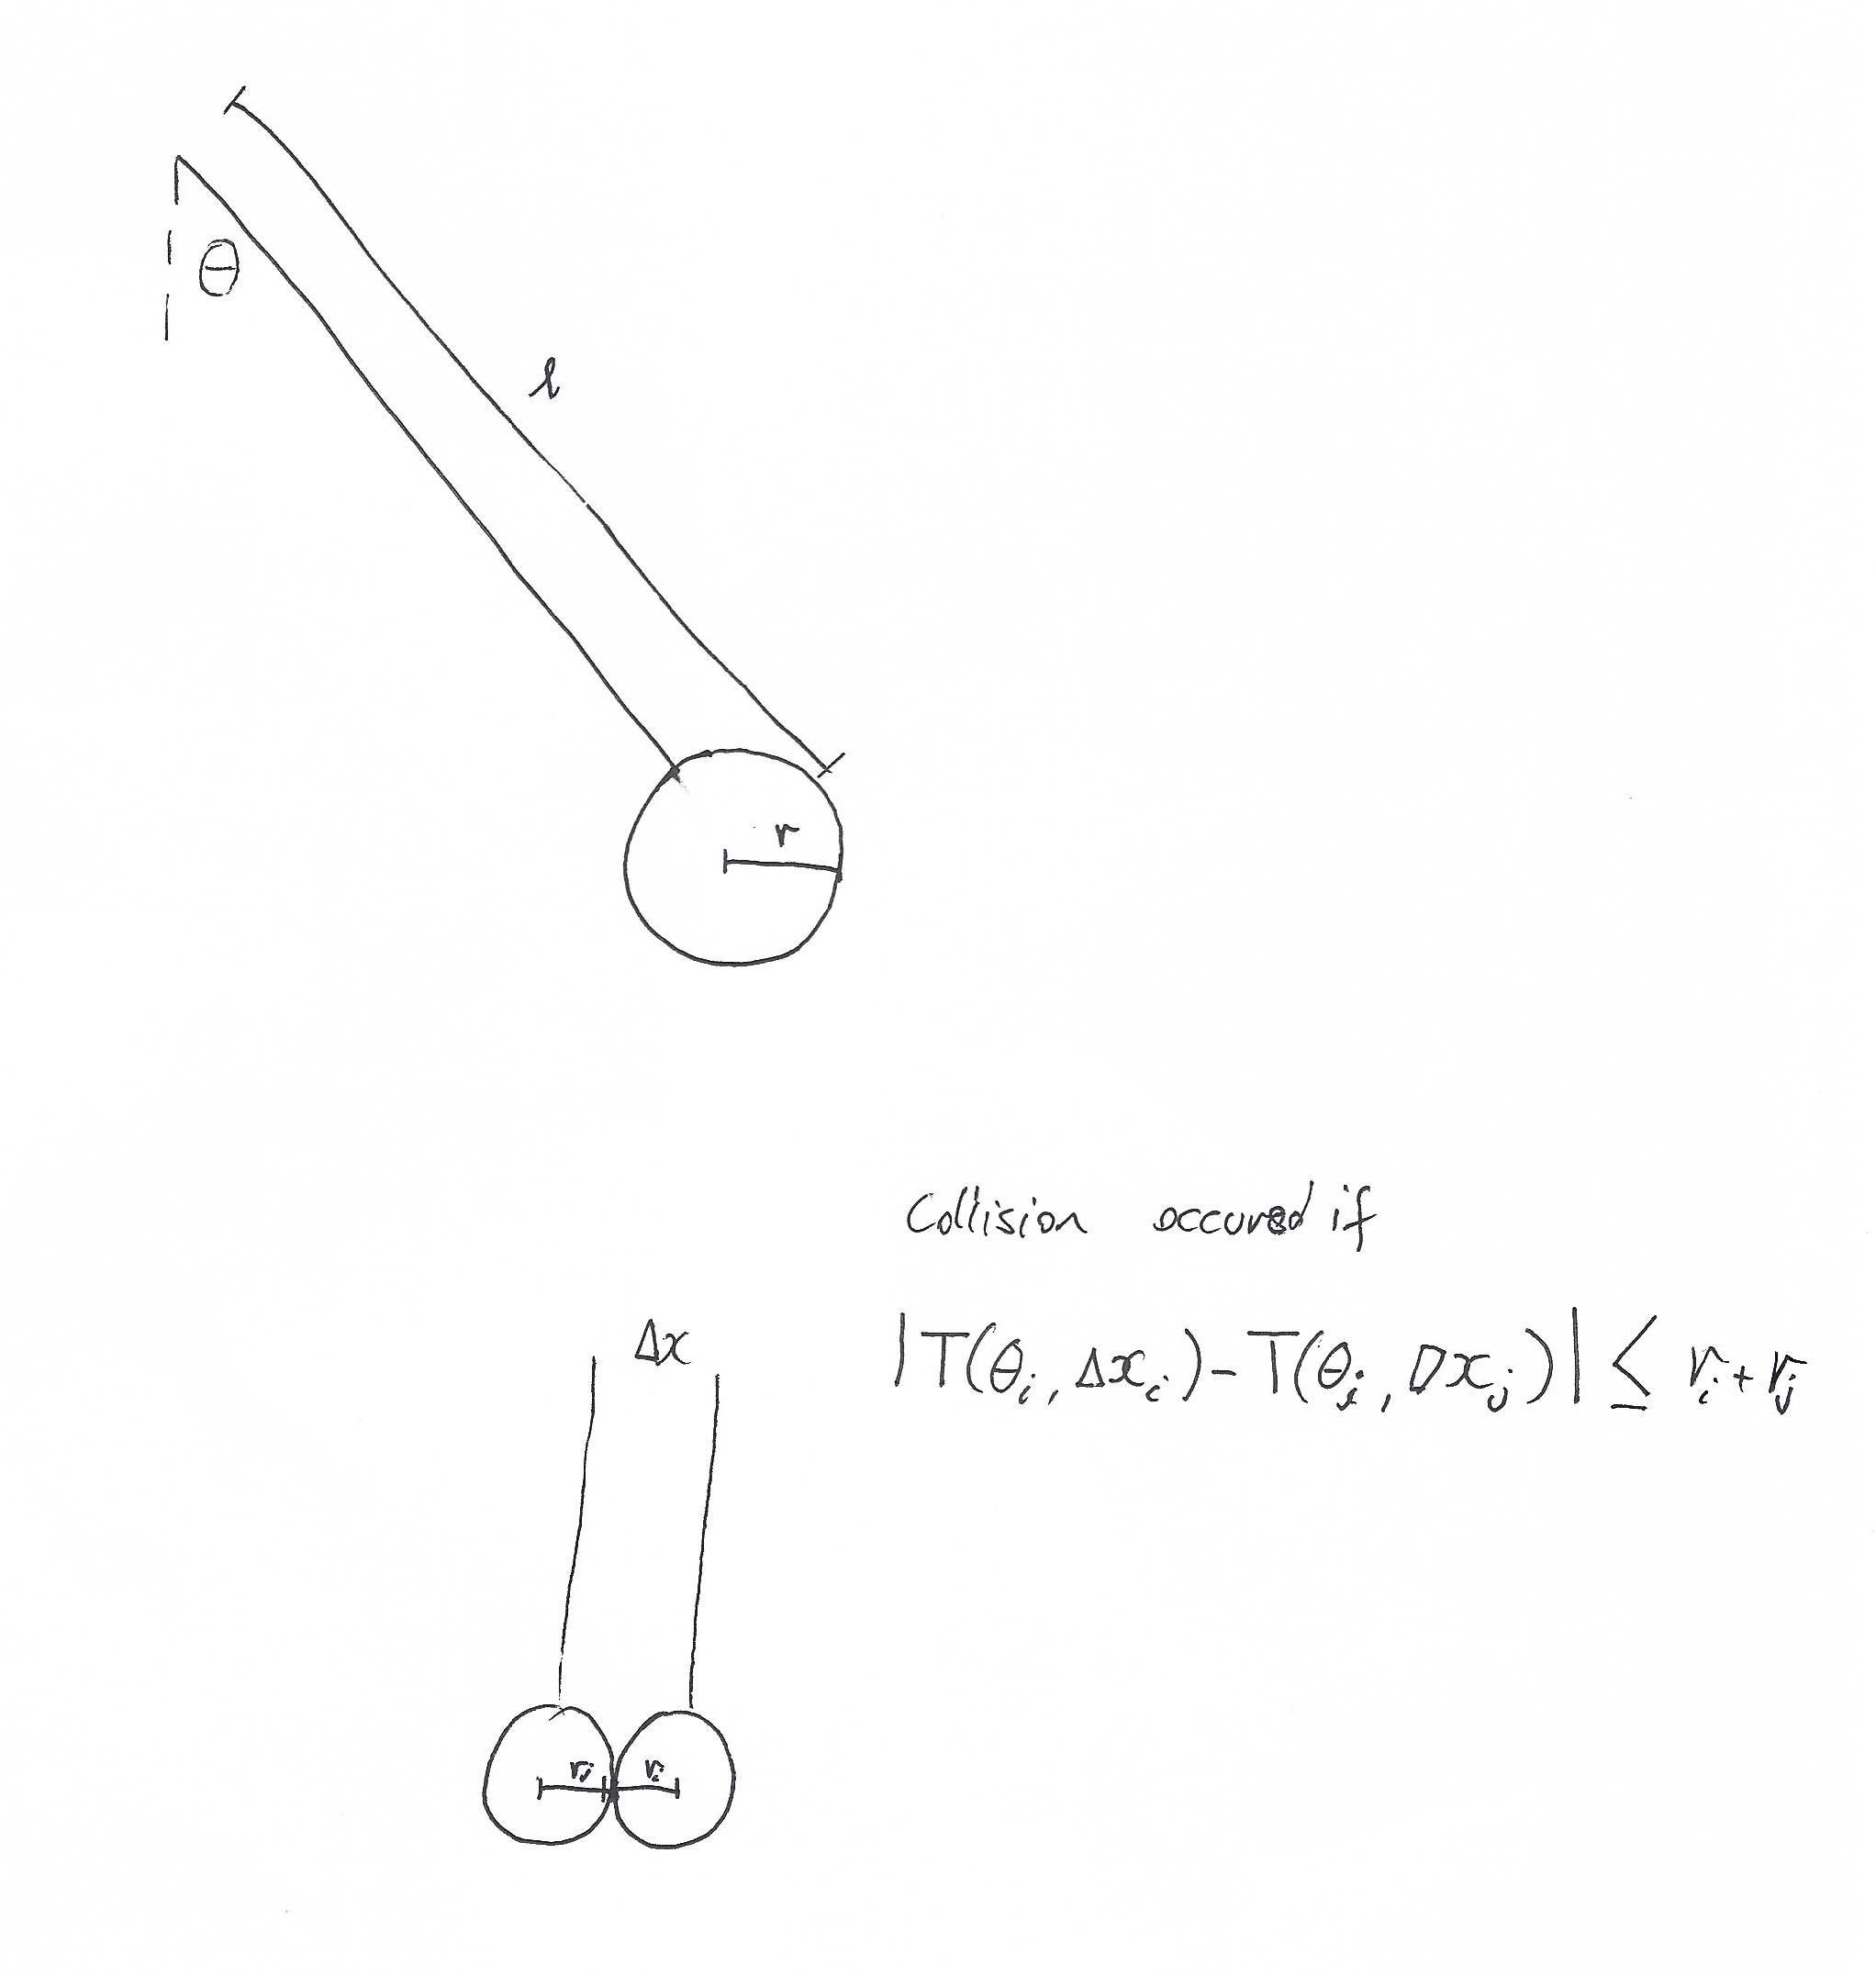 θ
l
r
Collision occured if
Δx
|T(θi, Δxi) - T(θj, Δxj)| ≤ ri + rj
rj ri